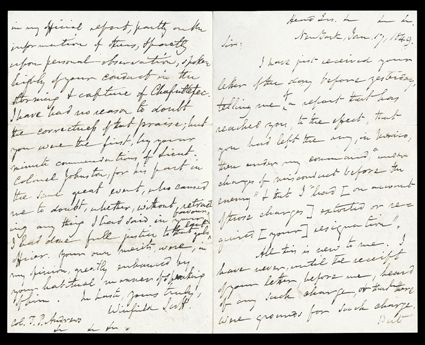 Head Qrs. &c &c &c
New York, Jan. 17, 1849.
Sir:
I have just received your
letter of the day before yesterday,
telling me "a report that has
reached you to the effect, that
you had left the army, in Mexico,
then under my command, under
charges of misconduct before the
enemy" & that I "had [on account
of those charges] extorted or re-
quired [your] resignation."
All this is news to me. I
have never, until the receipt
of your letter before me, heard
of any such charge, or that there
were grounds for such charge.
But
in my official report, partly on the
information of others, & partly
upon personal observation, spoke
highly of your conduct in the
storming & capture of Chapultepec.
I have had no reason to doubt
the correctness of that praise; but
you were the first, by your
minute commendations of Lieut.
Colonel Johnston, for his part in
the same great event, who caused
me to doubt, whether, without retract-
ing any thing I had said in favour,
I had done full justice to the
officer. Your own merits were, in
my opinion, greatly enhanced by
your habitual manner of speaking
of him. In haste, yours truly,
Winfield Scott
Col. T. P. Andrews
&c &c &c